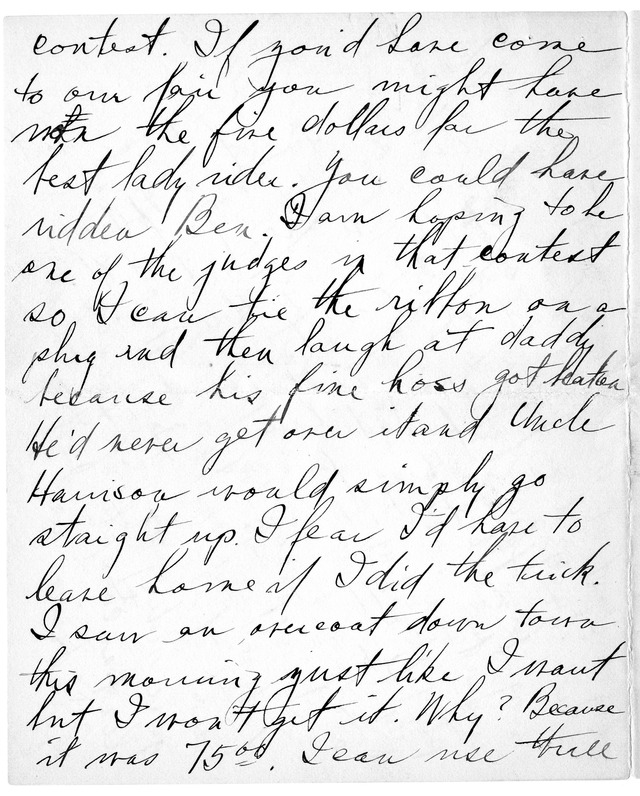 contest. If you'd have come
to our fair you might have
won the five dollars for the
best lady rider. You could have
ridden Ben. I am hoping to be
one of the judges in that contest
so I can tie the ribbon on a
plug and then laugh at daddy
because his fine hoss got beaten
He'd never get over it and Uncle
Harrison would simply go
straight up. I fear I'd have to
leave home if I did the trick.
I saw an overcoat down town
this morning just like I want
but I won't get it. Why? Because
it was 75.00. I can use